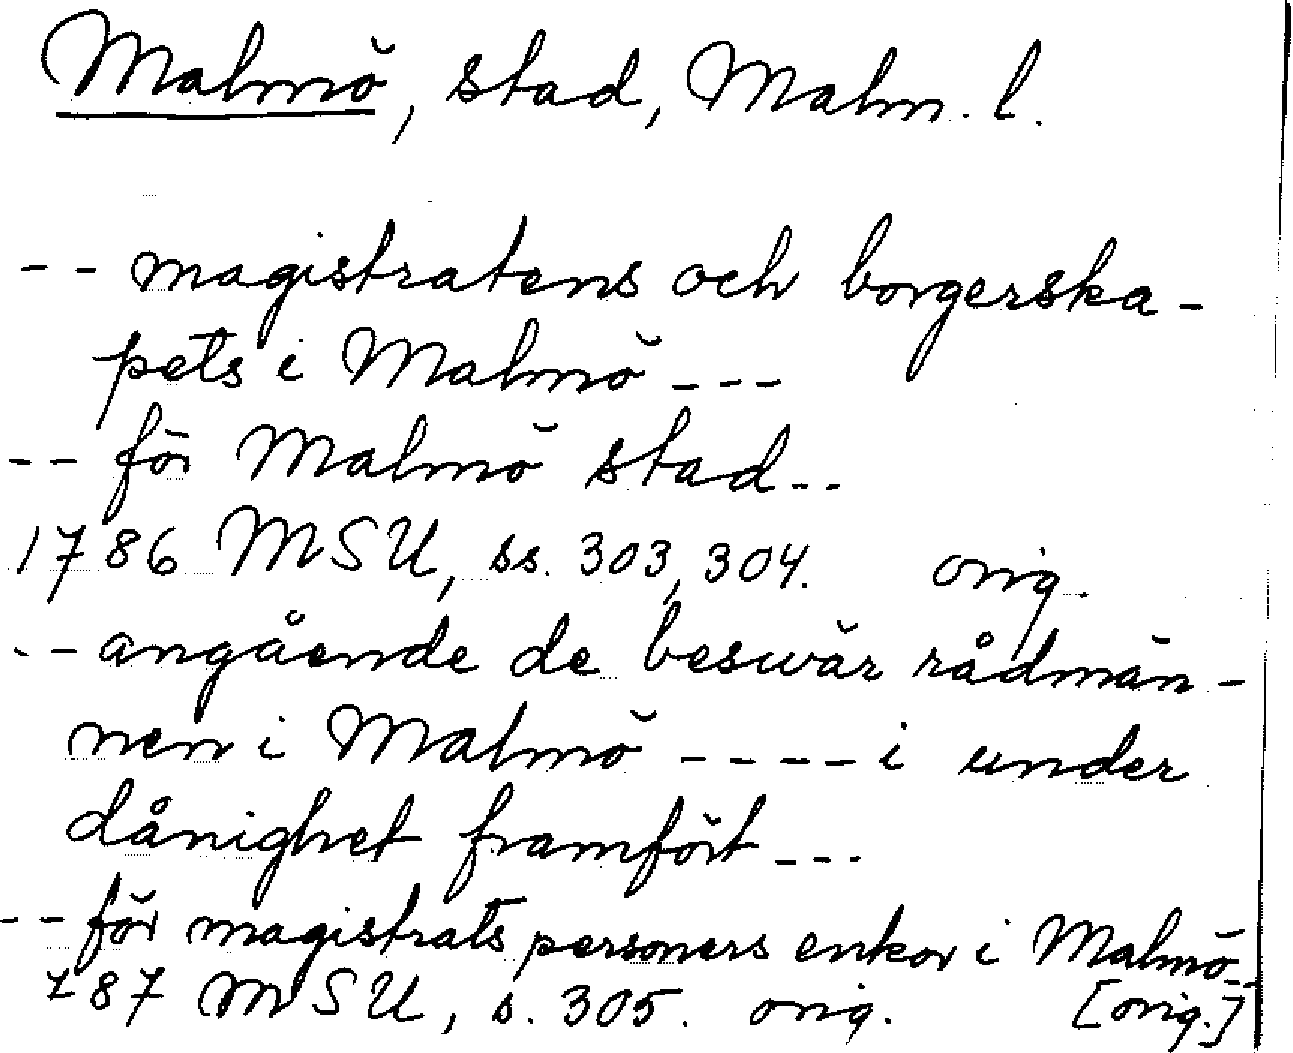 Malmö, stad, Malm. l.
-- magistratens och borgerska-
pets i Malmö ---
-- för Malmö stad --
1786 MSU, ss. 303, 304. orig.
-- angående de beswär rådmän-
nen i Malmö ---- i under
dånighet framfört ---
-- för magistrats personers enkor i Malmö --
787 MSU, s. 305. orig. [orig.]